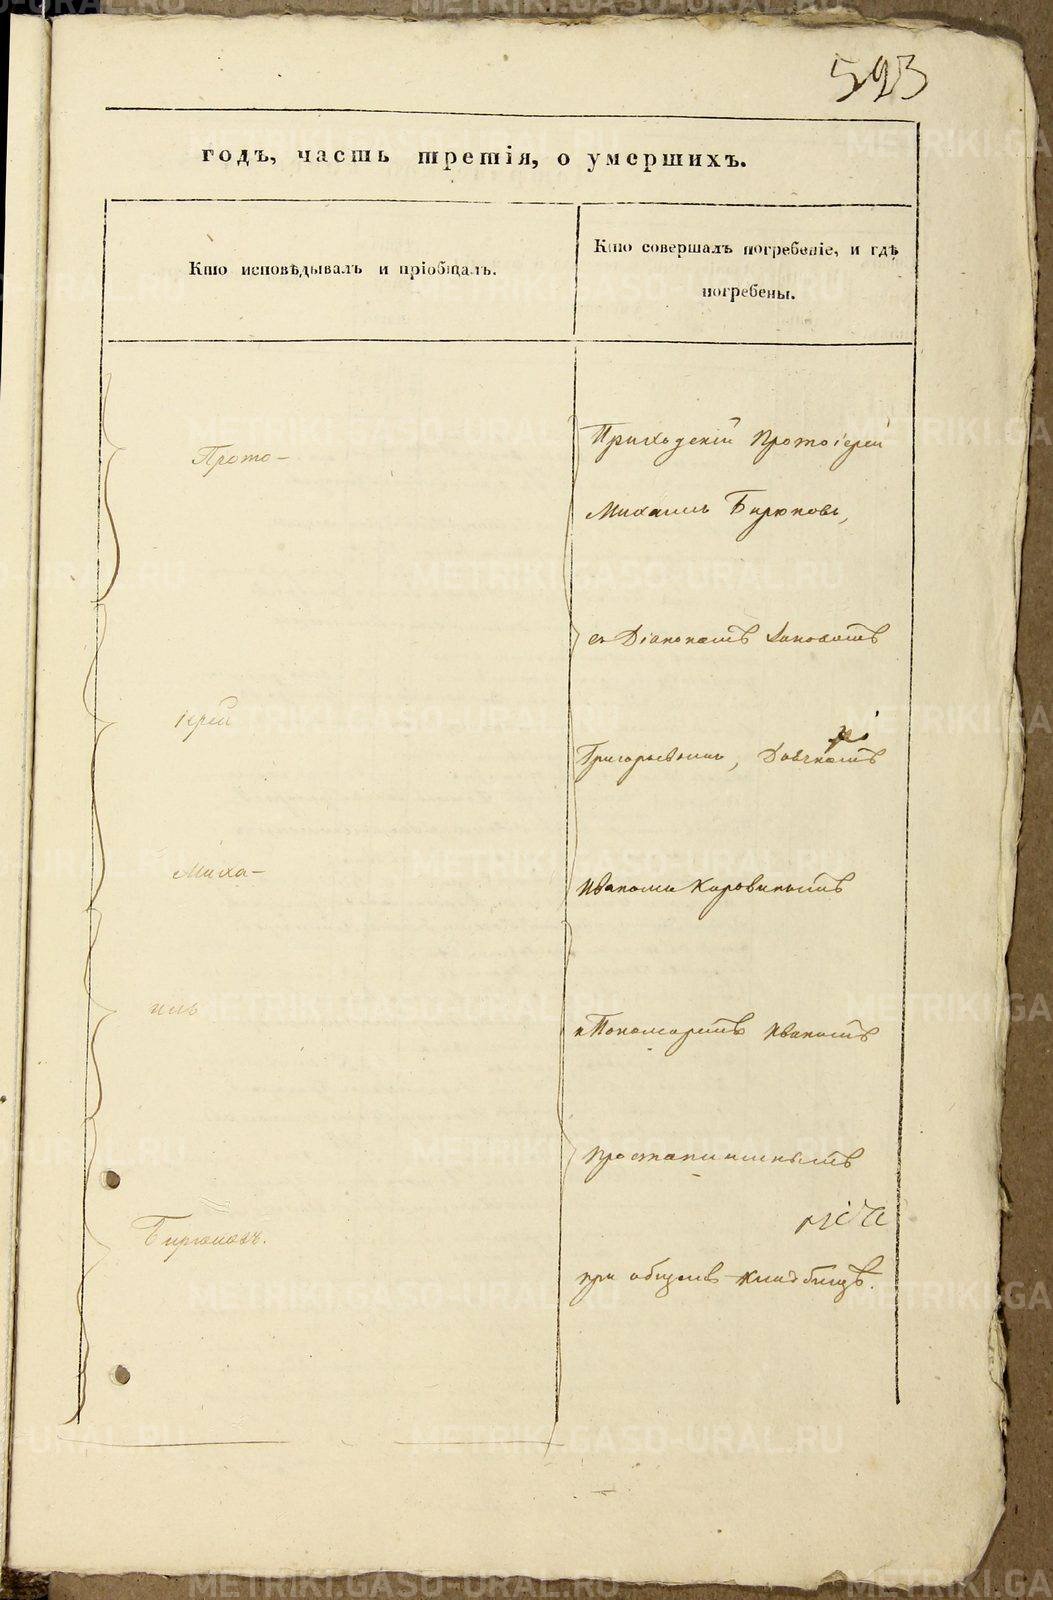 523
годъ, часть третія, о умершихъ.
Кто исповѣдывалъ и пріобщалъ.
Кто совершалъ погребеніе, и гдѣ
погребены.
Прото-
іерей
Миха-
илъ
Бирюковъ.
Приходскій Протоіерей
Михаилъ Бирюковъ,
съ Діакономъ
Григорьевымъ,
Иваномъ Коровинымъ
и Пономаремъ Иваномъ
Простанишнымъ
при общемъ кладбищѣ.
METRIKI.GASO-URAL.RU